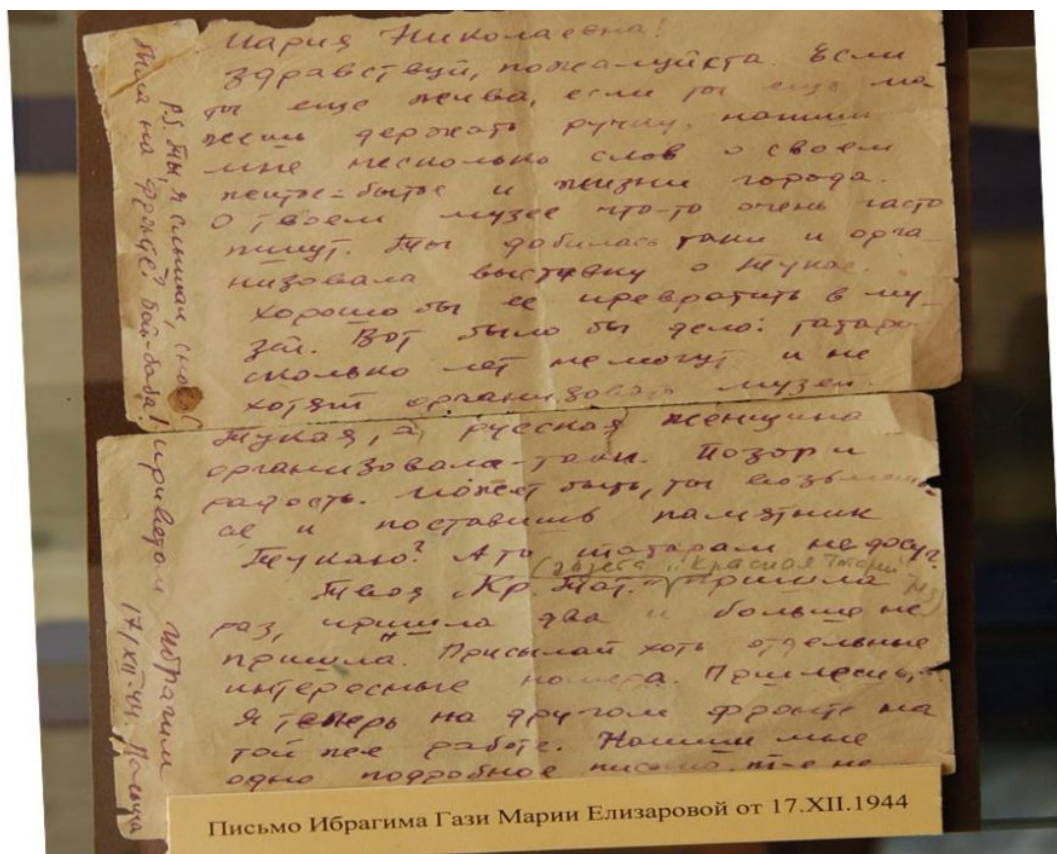 Мария Николаевна!
Здравствуй, пожалуйста. Если
ты еще жива, если ты еще мо-
жешь держать ручку, напиши
мне несколько слов о своем
житье-бытье и жизни города.
О твоем музее что-то очень часто
пишут. Ты добилась таки и орга-
низовала выставку о Тукае.
Хорошо бы ее превратить в му-
зей. Вот было бы дело: татары
сколько лет не могут и не
хотят организовать музей
Тукая, а русская женщина
организовала-таки. Позор и
радость. Может быть, ты возьмешь-
ся и поставишь памятник
Тукаю? А то татарам недосуг.
(газета "Красная Татария"
Твоя "Кр. Тат." пришла
раз, пришла два и больше не
пришла. Присылай хоть отдельные
интересные номера. Пришлешь,
Я теперь на другом фронте на
той же работе. Напиши мне
одно подробное письмо.
P.S. Ты, я слышал, снова
была на фронте? Бой-баба!
С приветом Ибрагим
17/XII-44. Польша
Письмо Ибрагима Гази Марии Елизаровой от 17.XII.1944